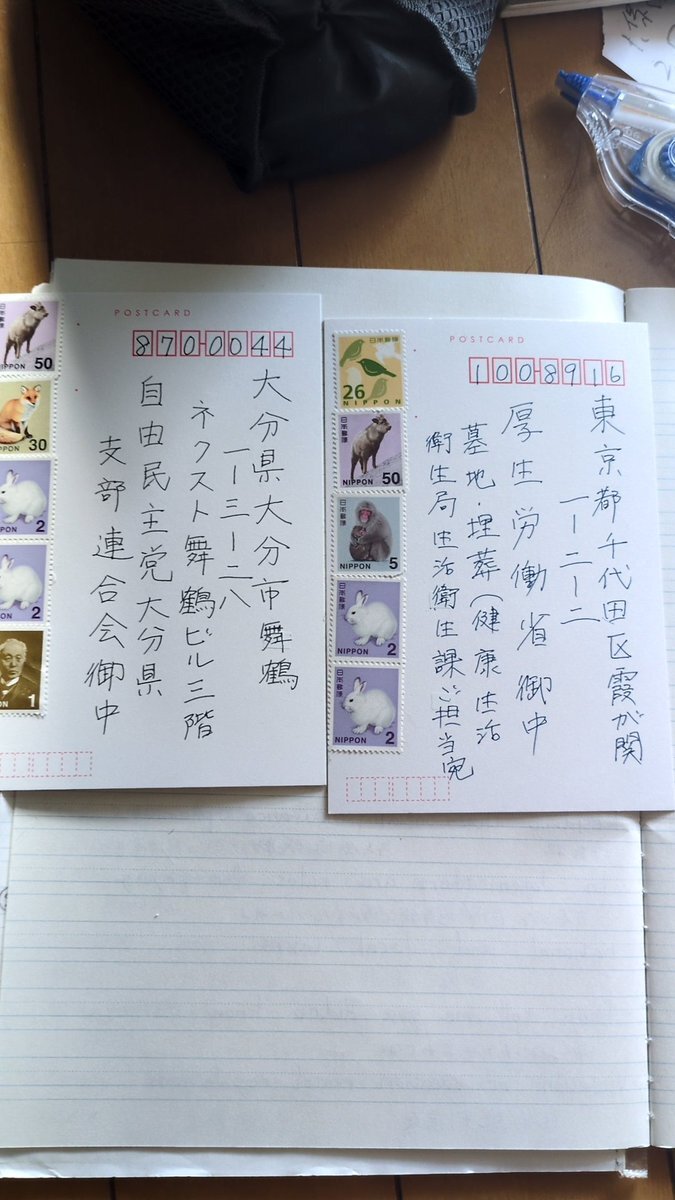 POSTCARD
870-0044
大分県大分市舞鶴
一ー三ー二八
ネクスト舞鶴ビル三階
自由民主党大分県
支部連合会御中
50
NIPPON
30
NIPPON
2
NIPPON
2
NIPPON
1
NIPPON
POSTCARD
100-8916
東京都千代田区霞が関
一ー二ー二
厚生労働省御中
墓地・埋葬(健康生活
衛生局生活衛生課ご担当宛
日本郵便
26
NIPPON
日本郵便
50
NIPPON
日本郵便
5
NIPPON
日本郵便
2
NIPPON
日本郵便
2
NIPPON